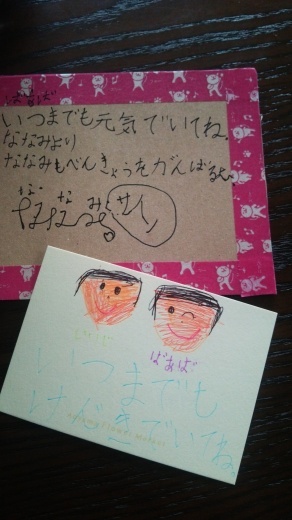 ばあば
いつまでも元気でいてね。
ななみより
ななみもべんきょうをがんばるよ。
な な み
ななみ
サイン
ばあば
いつまでも
げんきでいてね。